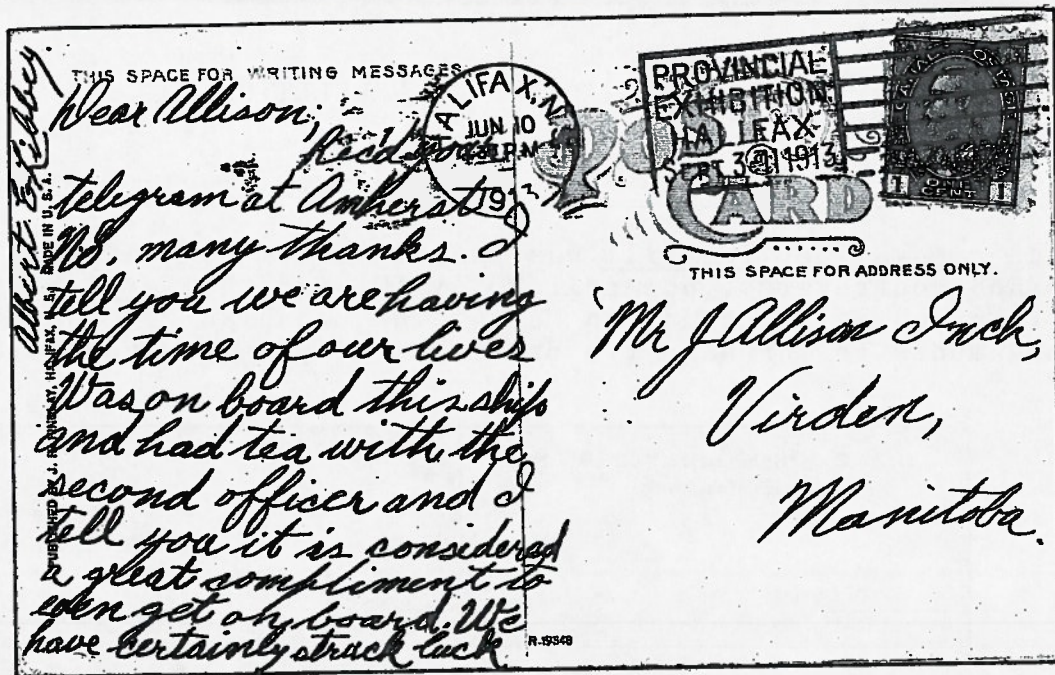 THIS SPACE FOR WRITING MESSAGES
Dear Allison,
Recd your
telegram at Amherst
NS. many thanks. I
tell you we are having
the time of our lives
Was on board this ship
and had tea with the
second officer and I
tell you it is considered
a great compliment to
even get on board. We
have certainly struck luck
Albert E. Libbey
MADE IN U.S.A.
HALIFAX, N.S.
JUN 10
PM
1913
PROVINCIAL
EXHIBITION
HALIFAX
SEPT. 3 1913
POST
CARD
1 CENT 1
THIS SPACE FOR ADDRESS ONLY.
Mr J Allison Inch,
Virden,
Manitoba.
R-19348